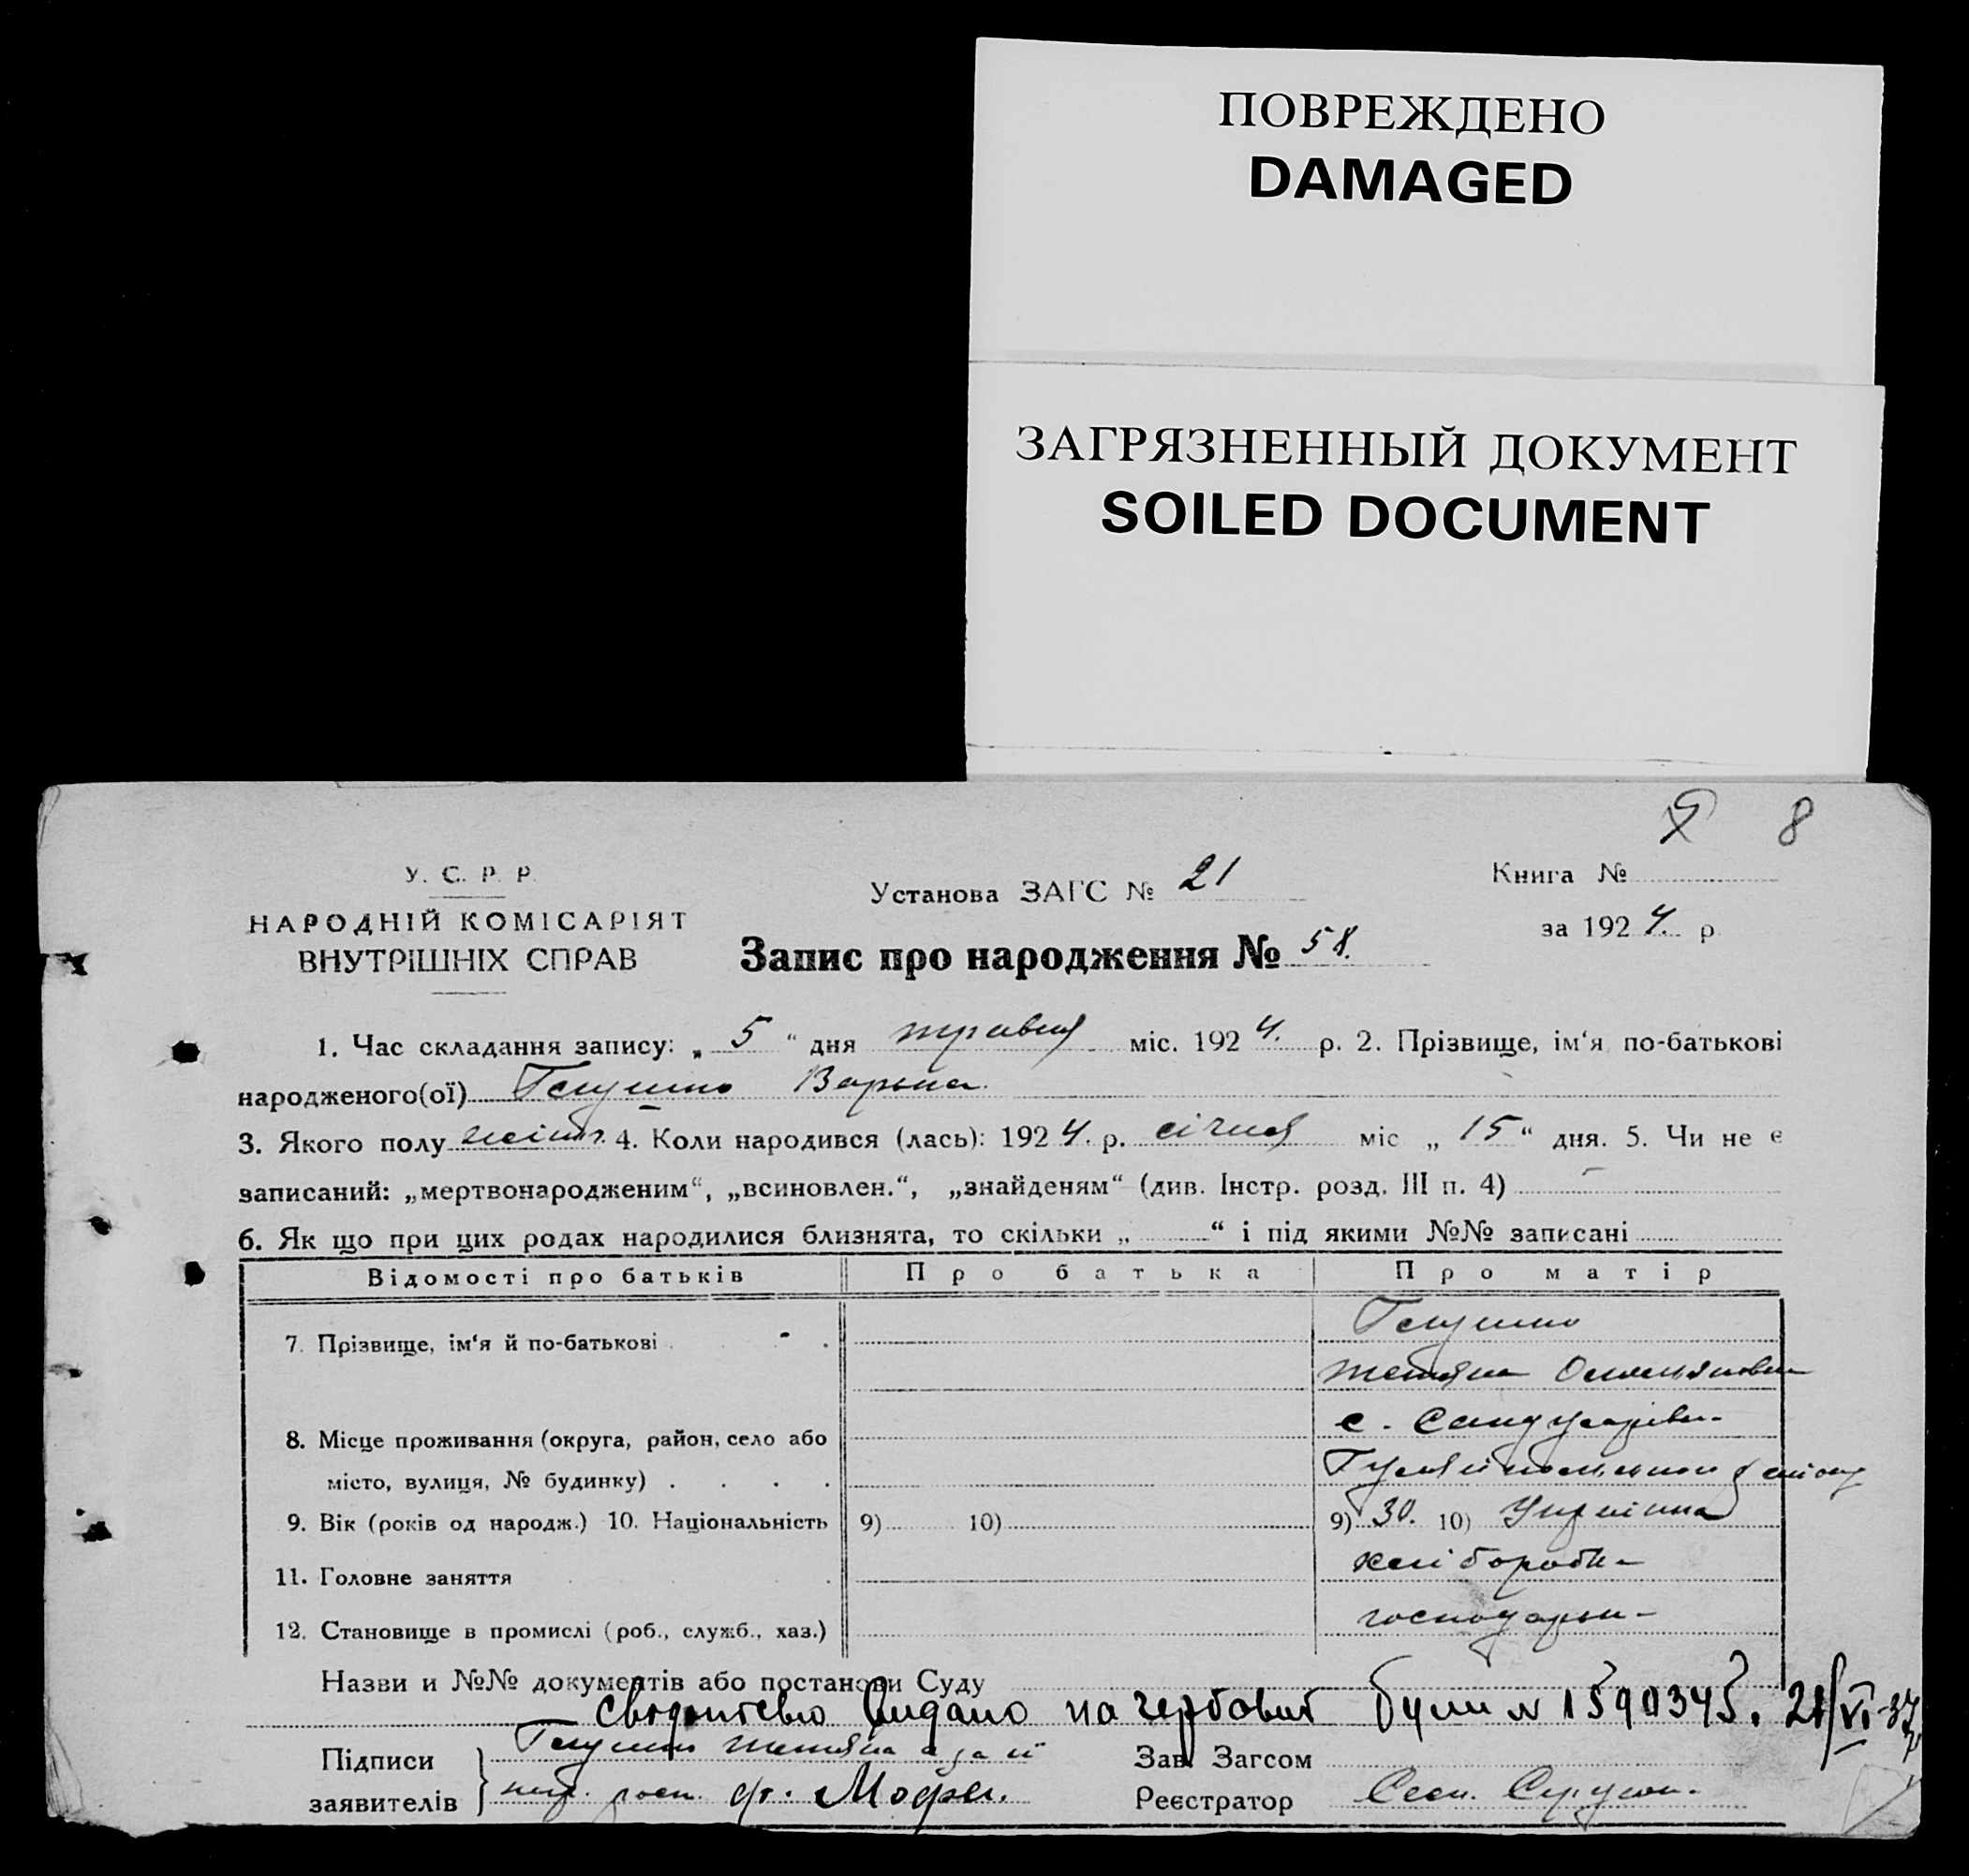 ПОВРЕЖДЕНО
DAMAGED
ЗАГРЯЗНЕННЫЙ ДОКУМЕНТ
SOILED DOCUMENT
8
У. С. Р. Р.
НАРОДНІЙ КОМІСАРІЯТ
ВНУТРІШНІХ СПРАВ
Установа ЗАГС № 21
Книга №
за 1924. р.
Запис про народження № 58.
1. Час складання запису: „ 5 “ дня травня міс. 1924. р. 2. Прізвище, ім‘я по-батькові
народженого(ої)
3. Якого полу жіноч. 4. Коли народився (лась): 1924. р. січня міс „ 15 “ дня. 5. Чи не є
записаний: „мертвонародженим“, „всиновлен.“, „знайденям“ (див. Інстр. розд. III п. 4) –
6. Як що при цих родах народилися близнята, то скільки „ “ і під якими №№ записані
Відомості про батьків Про батька Про матір
7. Прізвище, ім‘я й по-батькові
Тетяна
8. Місце проживання (округа, район, село або
с.
місто, вулиця, № будинку)
9. Вік (років од народж.) 10. Національність 9) 10) 9) 30. 10) Українка
11. Головне заняття хлібороб
12. Становище в промислі (роб., служб., хаз.) господар
Назви и №№ документів або постанови Суду
свідоцтво видано на гербовий бумы № 1590345. 21/VI-37
Підписи Тетяна а за її
Зав. Загсом
заявителів
Реєстратор